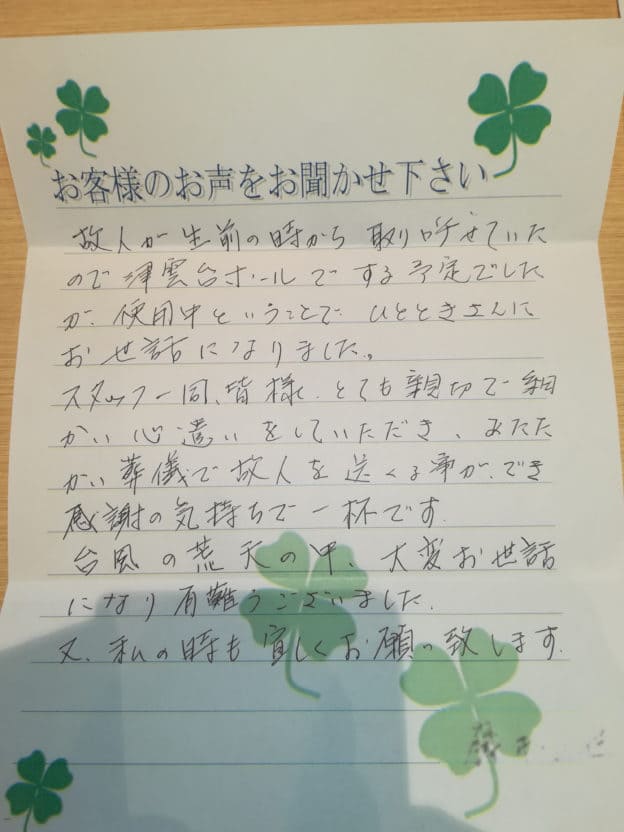 お客様のお声をお聞かせ下さい
故人が生前の時から 取り寄せていた
ので 津雲台ホールでする予定でした
が、使用中ということで、ひとときさんに
お世話になりました。
スタッフ一同、皆様、とても親切で細
かい心遣いをしていただき、あたた
かい葬儀で故人を送くる事が、でき
感謝の気持ちで一杯です.
台風の荒天の中、大変お世話
になり有難うございました.
又、私の時も宜しくお願い致します.